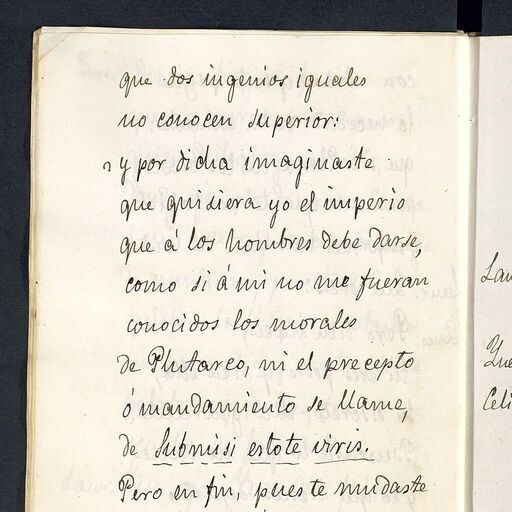 que dos ingenios iguales
no conocen superior:
y por dicha imaginaste
que quisiera yo el imperio
que á los hombres debe darse,
como si á mi no me fueran
conocidos los morales
de Plutarco, ni el precepto
ó mandamiento se llame,
de Submisi estote viris.
Pero en fin, pues te mudaste
Lau
Celi